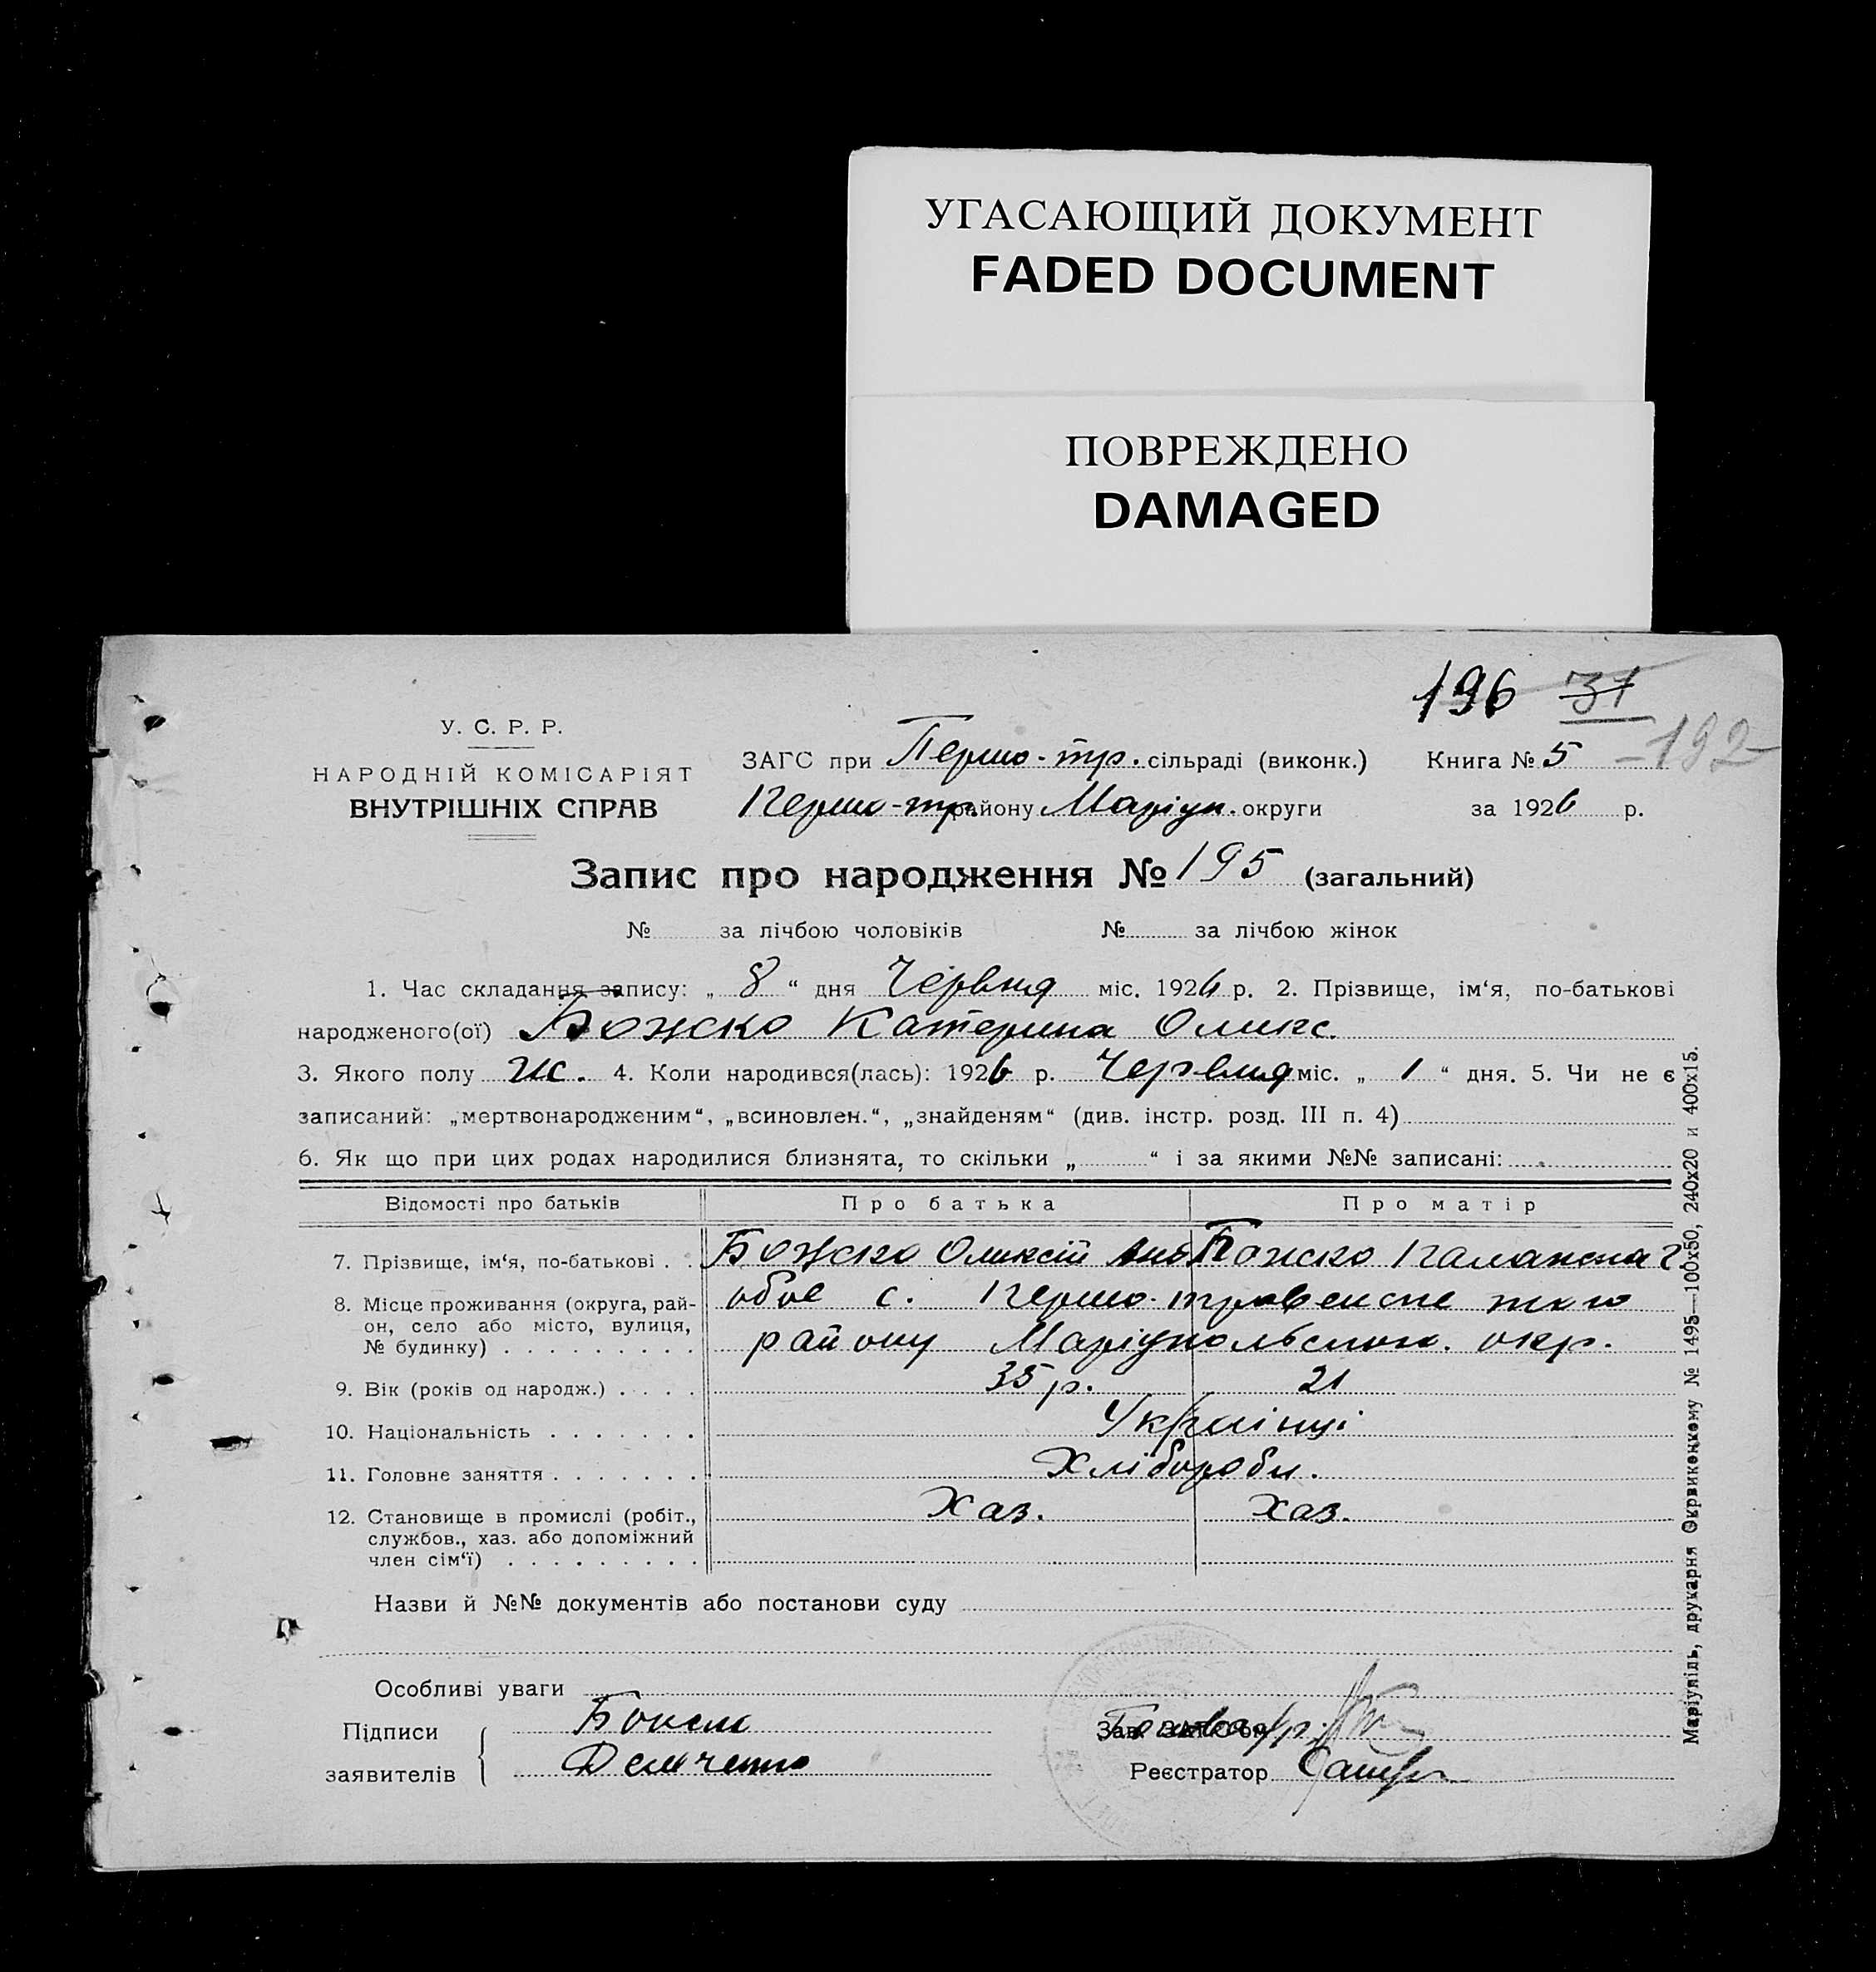 УГАСАЮЩИЙ ДОКУМЕНТ
FADED DOCUMENT
ПОВРЕЖДЕНО
DAMAGED
196 31
192
У. С. Р. Р.
НАРОДНІЙ КОМІСАРІЯТ
ВНУТРІШНІХ СПРАВ
ЗАГС при Першо-тр. сільраді (виконк.) Книга № 5
Першо-тр. району Маріуп. округи за 1926 р.
Запис про народження № 195 (загальний)
№ за лічбою чоловіків № за лічбою жінок
1. Час складання запису: „ 8 “ дня Червня міс. 1926 р. 2. Прізвище, ім‘я, по-батькові
народженого(ої) Божко Катерина Оликс.
3. Якого полу ж. 4. Коли народився(лась): 1926 р. Червня міс. „ 1 “ дня. 5. Чи не є
записаний: „мертвонародженим“, „всиновлен.“, „знайденям“ (див. інстр. розд. III п. 4)
6. Як що при цих родах народилися близнята, то скільки „ “ і за якими №№ записані:
Відомості про батьків Про батька Про матір
7. Прізвище, ім‘я, по-батькові . . Божко Олексій Божко
8. Місце проживання (округа, рай-
он, село або місто, вулиця,
№ будинку) . . . . . . . . .
обое с. Першо-травенспе
району Маріупольськ. окр.
9. Вік (років од народж.) . . . . 35 р. 21
10. Національність . . . . . . . Українці
11. Головне заняття . . . . . . . Хлібороби.
12. Становище в промислі (робіт.,
службов., хаз. або допоміжний
член сім‘ї) . . . . . . . . .
Хаз. Хаз.
Назви й №№ документів або постанови суду
Особливі уваги
Підписи
заявителів
Демченко
Зав. ЗАГС‘ом
Реєстратор
Маріупіль, друкарня Окрвиконкому № 1495—100х50, 240х20 и 400х15.